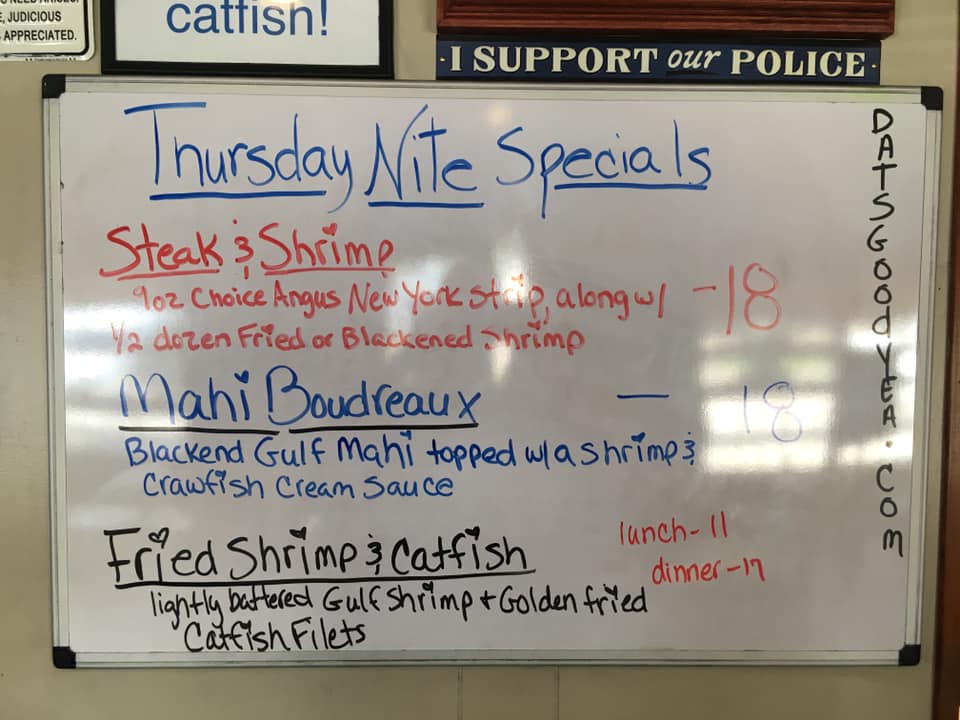 E, JUDICIOUS
APPRECIATED.
catfish!
·I SUPPORT our POLICE·
Thursday Nite Specials
Steak & Shrimp
9oz Choice Angus New York Strip, along w/ -18
1/2 dozen Fried or Blackened Shrimp
Mahi Boudreaux — 18
Blackend Gulf Mahi topped w/a shrimp &
Crawfish Cream Sauce
Fried Shrimp & Catfish
lunch-11
dinner-17
lightly battered Gulf Shrimp + Golden fried
Catfish Filets
DATSGOODYEA.COM